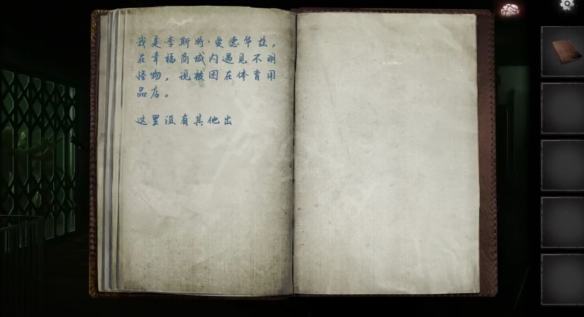 我是李斯明·爱德华兹，
在幸福商城内遇见不明
怪物，现被困在体育用
品店。
这里没有其他出